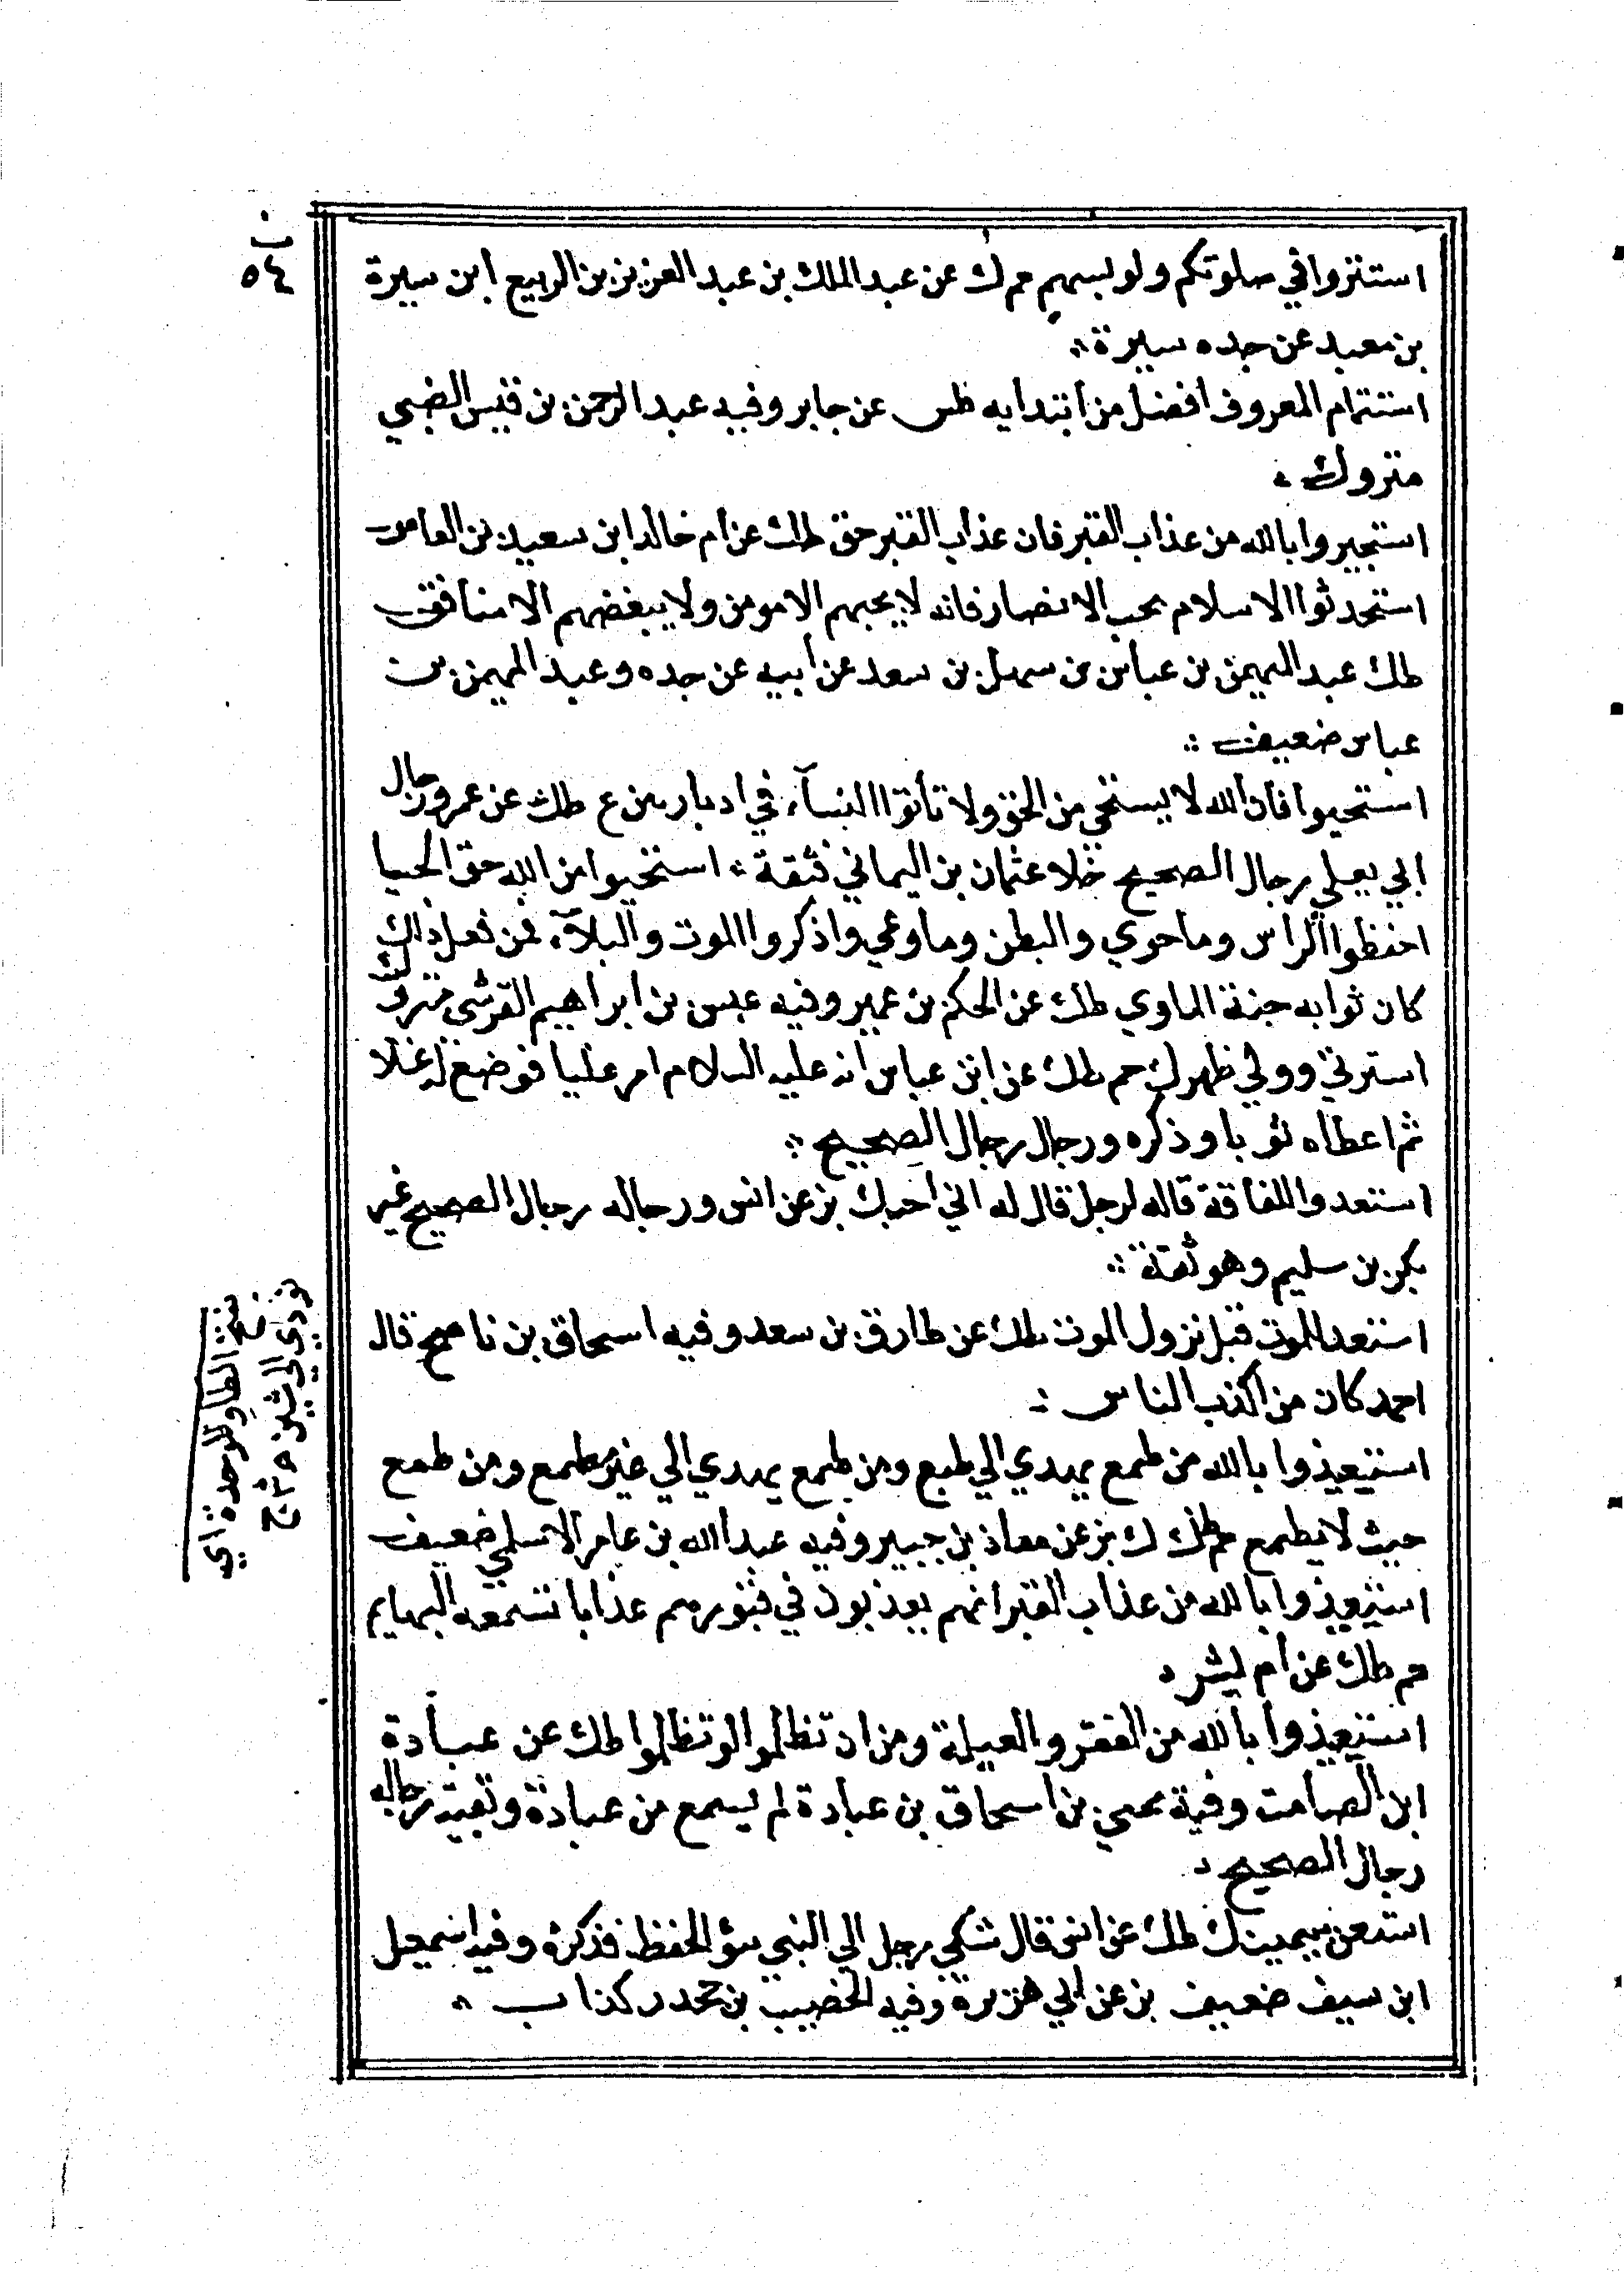 استتروا في صلوتكم ولو بسهم حم ك عن عبد الملك بن عبد العزيز بن الربيع ابن سبرة
بن معبد عن جده سبرة
استتمام المعروف افضل من ابتدايه طس عن جابر وفيه عبد الرحمن بن قيس الضبي
متروك
استجيروا بالله من عذاب القبر فان عذاب القبر حق طك عن أم خالد ابن سعيد بن العاص
استحدثوا الاسلام بحب الانصار فانه لا يحبهم الا مومن ولا يبغضهم الا منافق
طك عبد المهيمن بن عباس بن سهل بن سعد عن أبيه عن جده وعبد المهيمن بن
عباس ضعيف
استحيوا فان الله لا يستحي من الحق ولا تأتوا النسآء في ادبارهن ع طك عن عمر ورجال
ابي يعلي رجال الصحيح خلا عثمان بن اليماني ثقة استحيوا من الله حق الحيا
احفظوا الراس وما حوي والبطن وما وعي واذكروا الموت والبلآء فمن فعل ذلك
كان ثوابه جنة الماوي طك عن الحكم بن عمير وفيه عبس بن ابراهيم القرشي متروك
استرني وولي ظهرك حم طك عن ابن عباس انه عليه السلام امر عليا فوضع له غسلا
ثم اعطاه ثوبا وذكره ورجال رجال الصحيح
استعدوا للفاقة قاله لرجل قال له اني احبك بز عن انس ورجاله رجال الصحيح غير
بكر بن سليم وهو ثقة
استعد للموت قبل نزول الموت طك عن طارق بن سعد وفيه اسحاق بن ناصح قال
احمد كان من اكذب الناس
استعيذوا بالله من طمع يهدي الي طبع ومن طمع يهدي الي غير مطمع ومن طمع
حيث لا يطمع حم طك ك بز عن معاذ بن جبير وفيه عبد الله بن عامر الاسلمي ضعيف
استعيذوا بالله من عذاب القبر انهم يعذبون في قبورهم عذابا تسمعه البهايم
حم طك عن أم بشر
استعيذوا بالله من الفقر والعيلة ومن ان تظلموا او تظلموا طك عن عبادة
ابن الصامت وفية يحيي بن اسحاق بن عبادة لم يسمع من عبادة وبقية رجاله
رجال الصحيح
استعن بيمينك طك عن انس قال شكي رجل الي النبي سؤ الحفظ فذكره وفيه اسمعيل
ابن سيف ضعيف بز عن ابي هريرة وفيه الخصيب بن جحدر كذاب